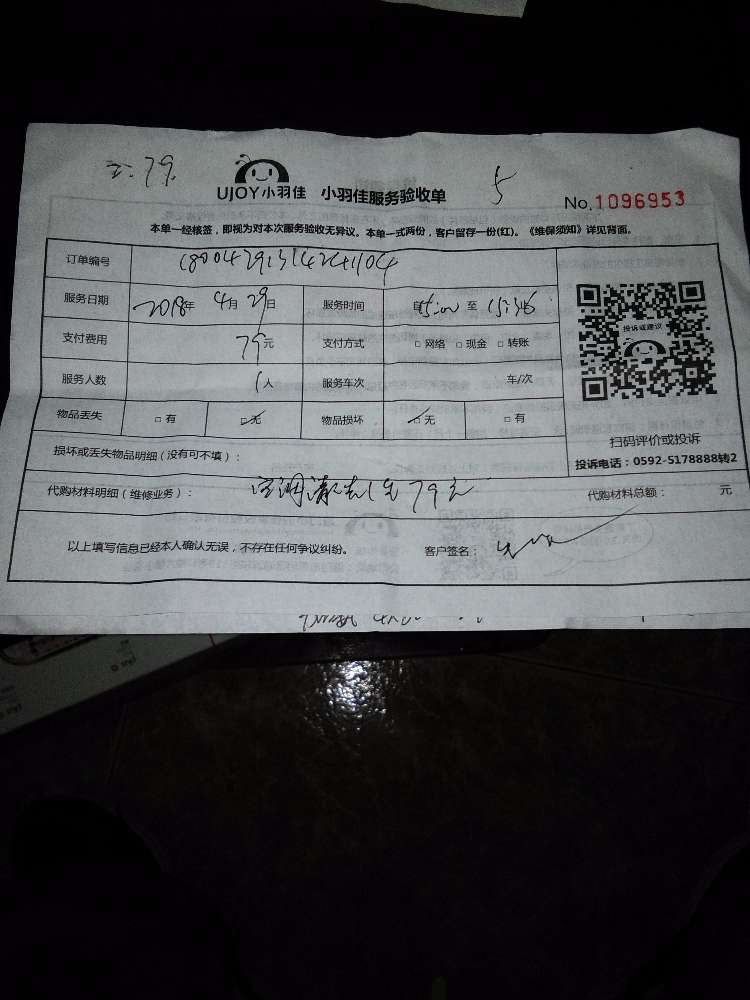 79
UJOY小羽佳 小羽佳服务验收单 5 No.1096953
本单一经核签，即视为对本次服务验收无异议。本单一式两份，客户留存一份(红)。《维保须知》详见背面。
订单编号
服务日期 2018年 4月 29日 服务时间 自15:00 至 15:36
投诉或建议
支付费用 79元 支付方式 □ 网络 □ 现金 □ 转账
服务人数 1人 服务车次 车/次
物品丢失 □ 有 □ 无 物品损坏 □ 无 □ 有
扫码评价或投诉
投诉电话：0592-5178888转2
损坏或丢失物品明细（没有可不填）：
代购材料明细（维修业务）： 空调清洗1台79元 代购材料总额： 元
以上填写信息已经本人确认无误，不存在任何争议纠纷。 客户签名：